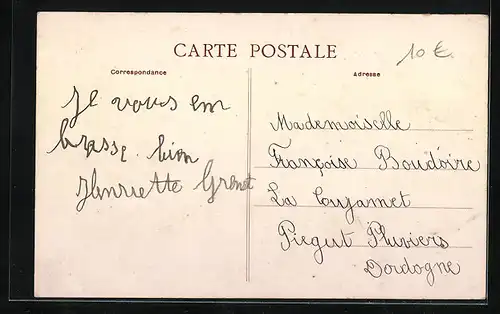 CARTE POSTALE
10 €
Correspondance
Adresse
Je vous em
brasse bien
Henriette Grenet
Mademoiselle
Françoise Boudoire
La
Piegut Pluviers
Dordogne